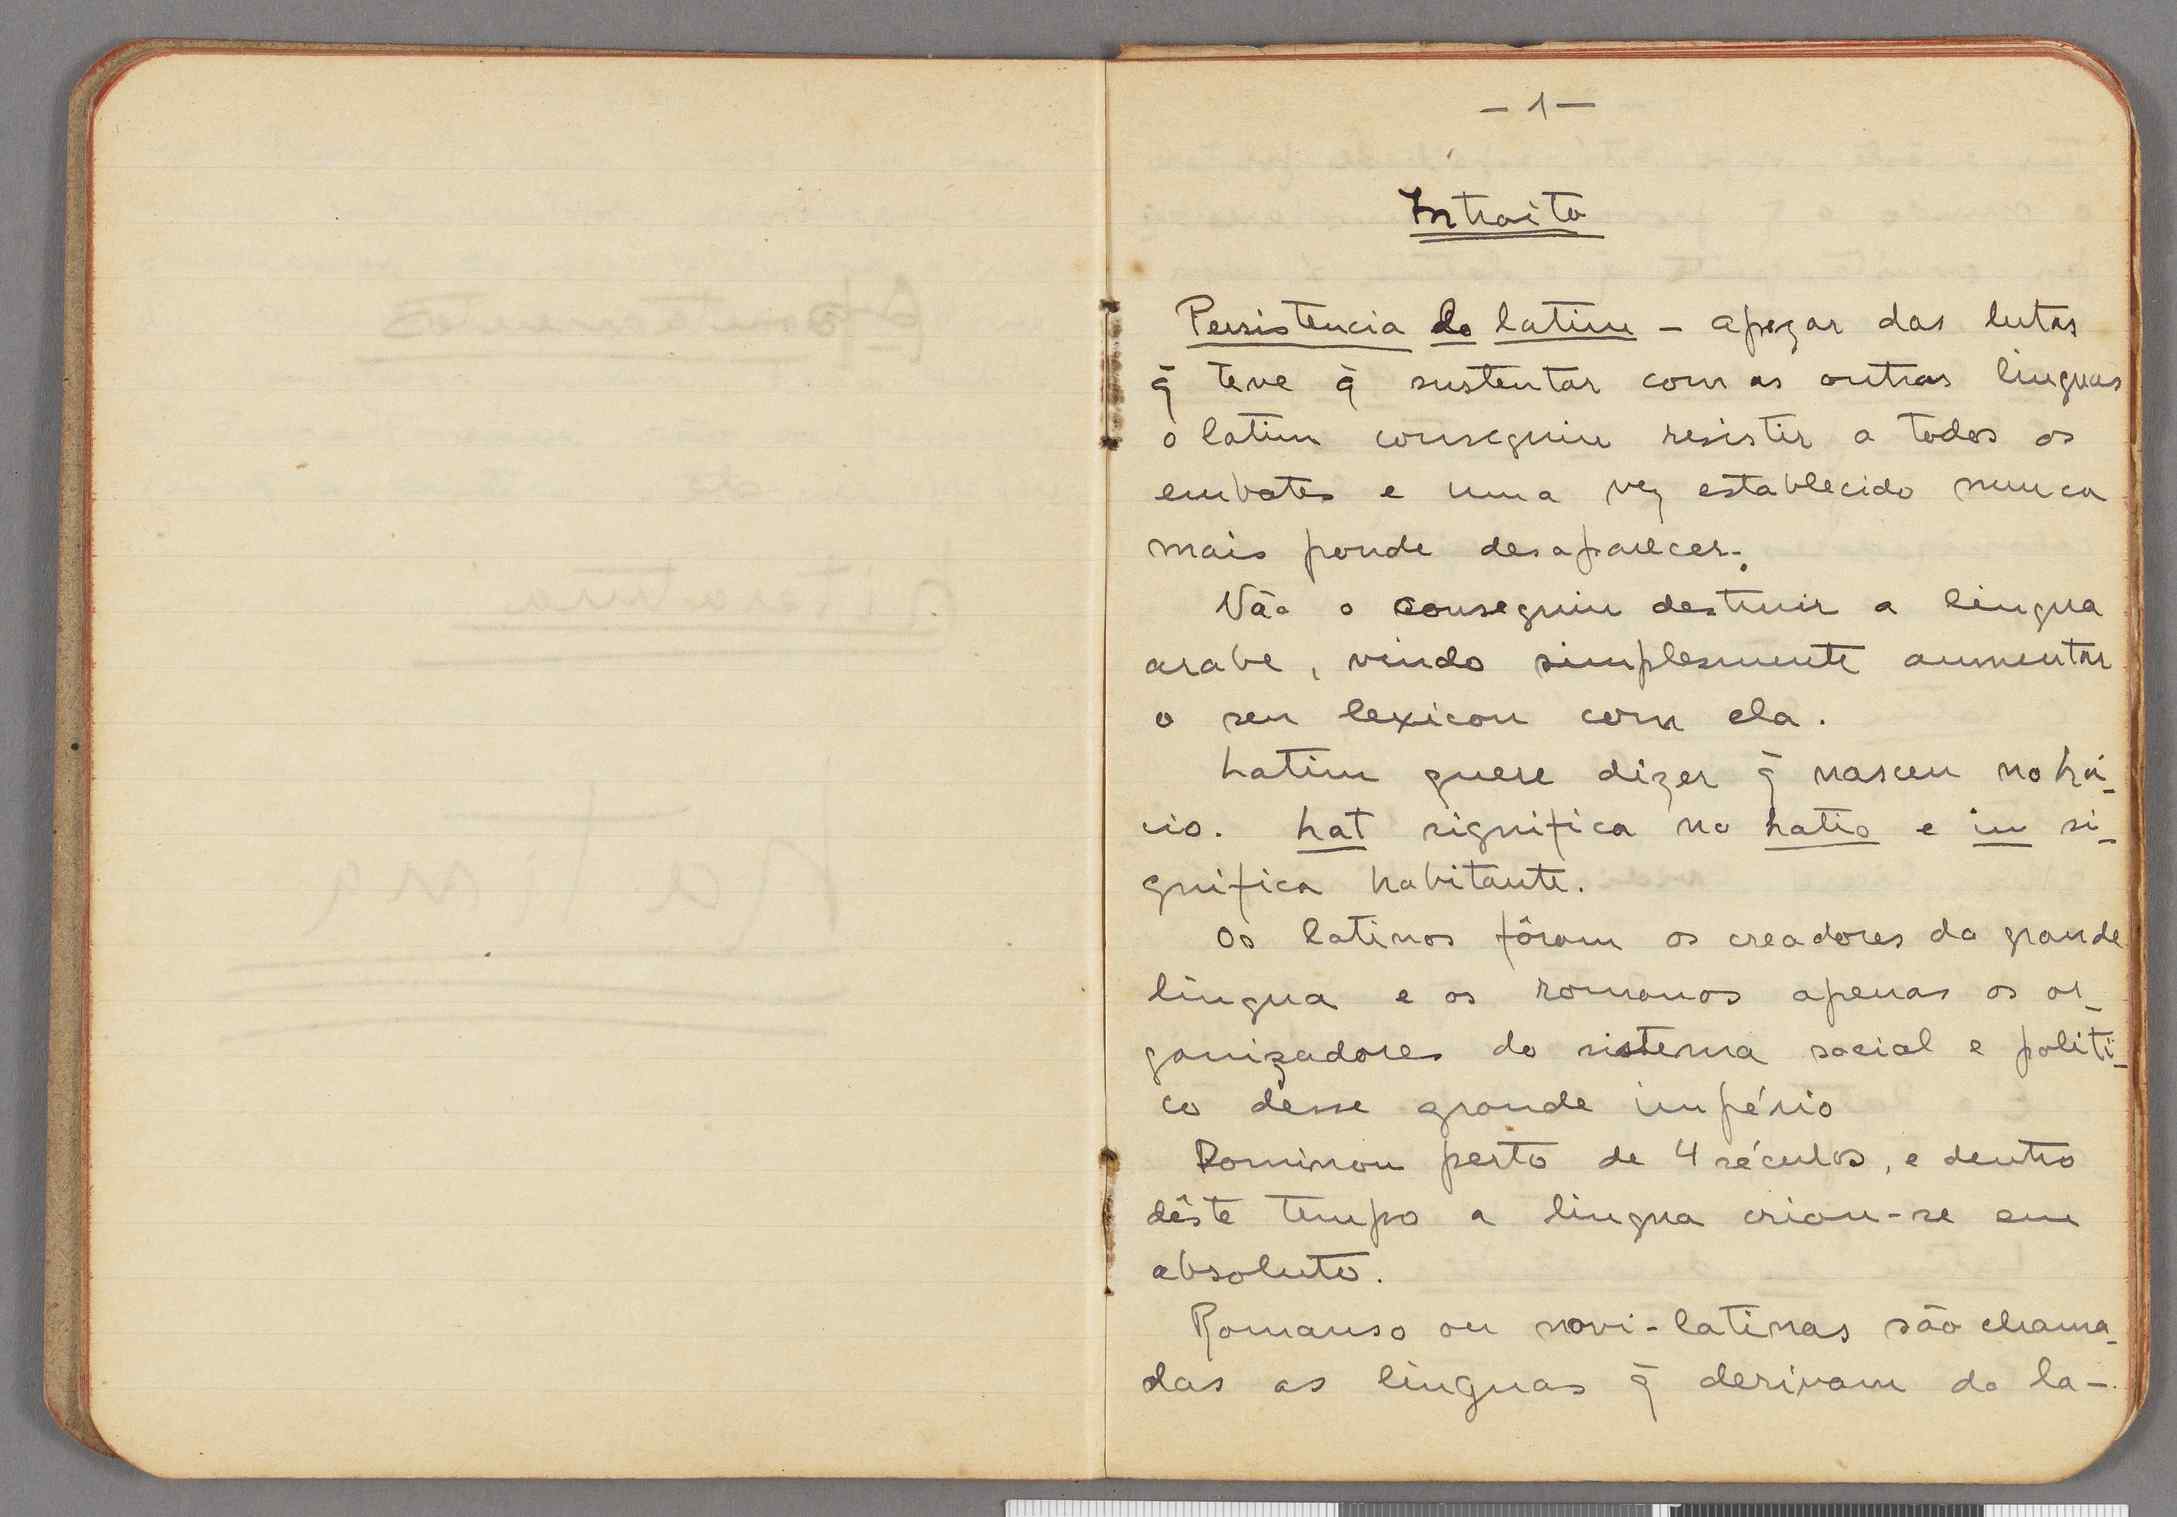 – 1 –
Introito
Persistencia do latim – apezar das lutas
q̃ teve q̃ sustentar com as outras linguas
o latim conseguiu resistir a todos os
embates e uma vez establecido nunca
mais poude desaparecer.
Não o conseguiu destruir a lingua
arabe, vindo simplesmente aumentar
o seu lexicon com ela.
Latim quere dizer q̃ nasceu no Lá-
cio. Lat significa no Latio e in si-
gnifica habitante.
Os latinos fôram os creadores da grande
lingua e os romanos apenas os or-
ganizadores do sistema social e politi-
co dêsse grande império
Dominou perto de 4 séculos, e dentro
dêste tempo a lingua criou-se em
absoluto.
Romanso ou novi-latinas são chama-
das as linguas q̃ derivam do la-